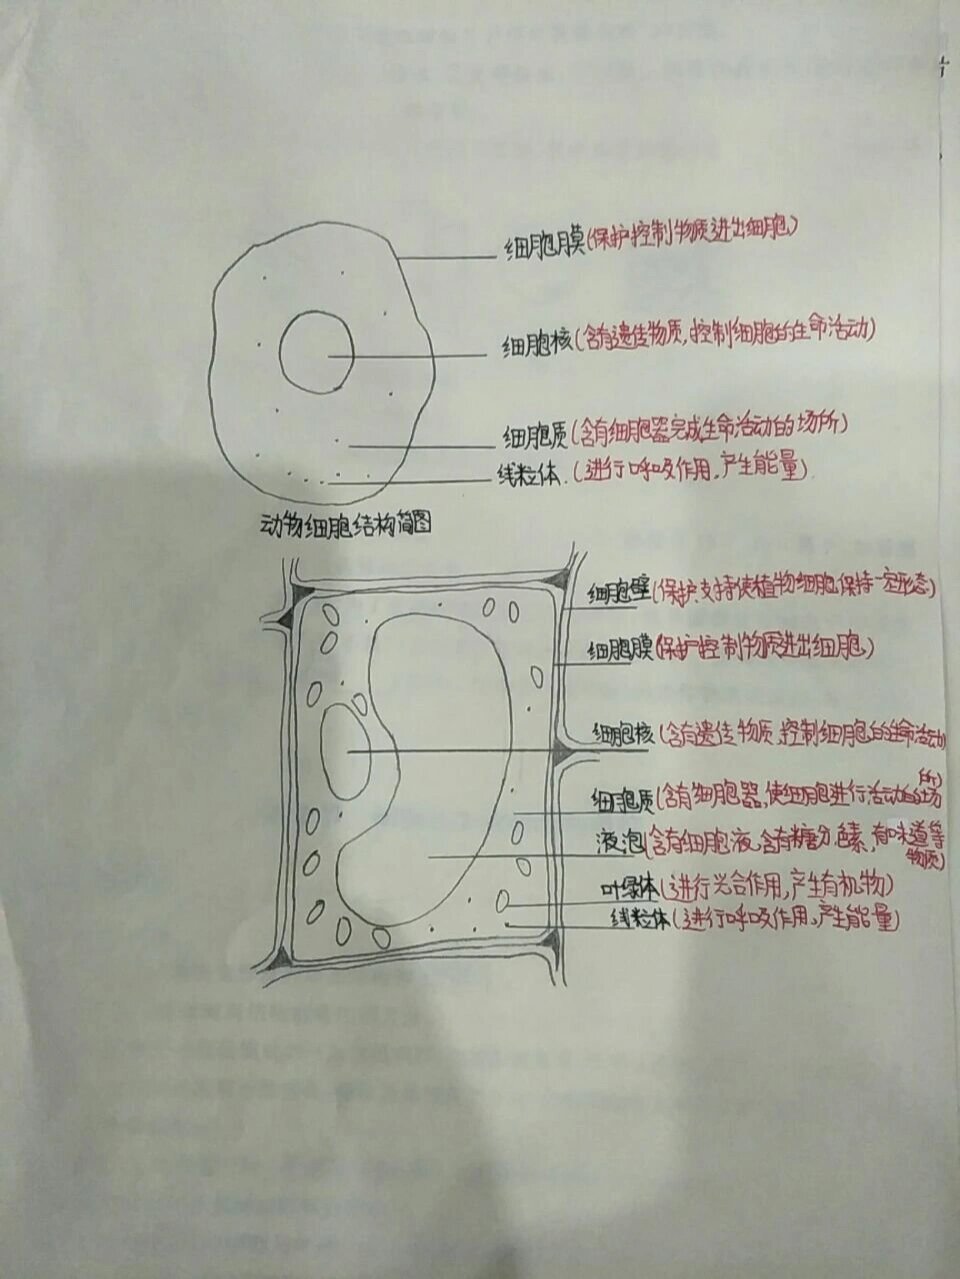 细胞膜(保护控制物质进出细胞)
细胞核(含有遗传物质,控制细胞的生命活动)
细胞质(含有细胞器完成生命活动的场所)
线粒体.(进行呼吸作用,产生能量)
动物细胞结构简图
细胞壁(保护.支持使植物细胞保持一定形态)
细胞膜(保护控制物质进出细胞)
细胞核(含有遗传物质,控制细胞的生命活动)
细胞质(含有细胞器,使细胞进行活动的场所)
液泡(含有细胞液,含有糖分.色素,有味道等物质)
叶绿体(进行光合作用,产生有机物)
线粒体(进行呼吸作用,产生能量)